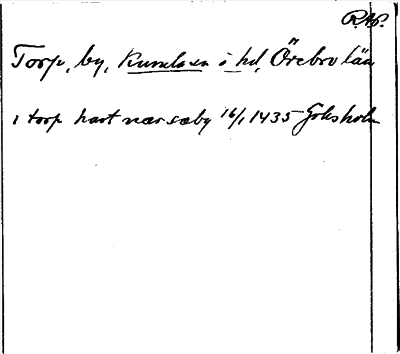 R.Ap.
Torp, by, Kumla sn o hd, Örebro län
i torp hart nær sæby 16/1 1435 Goksholm